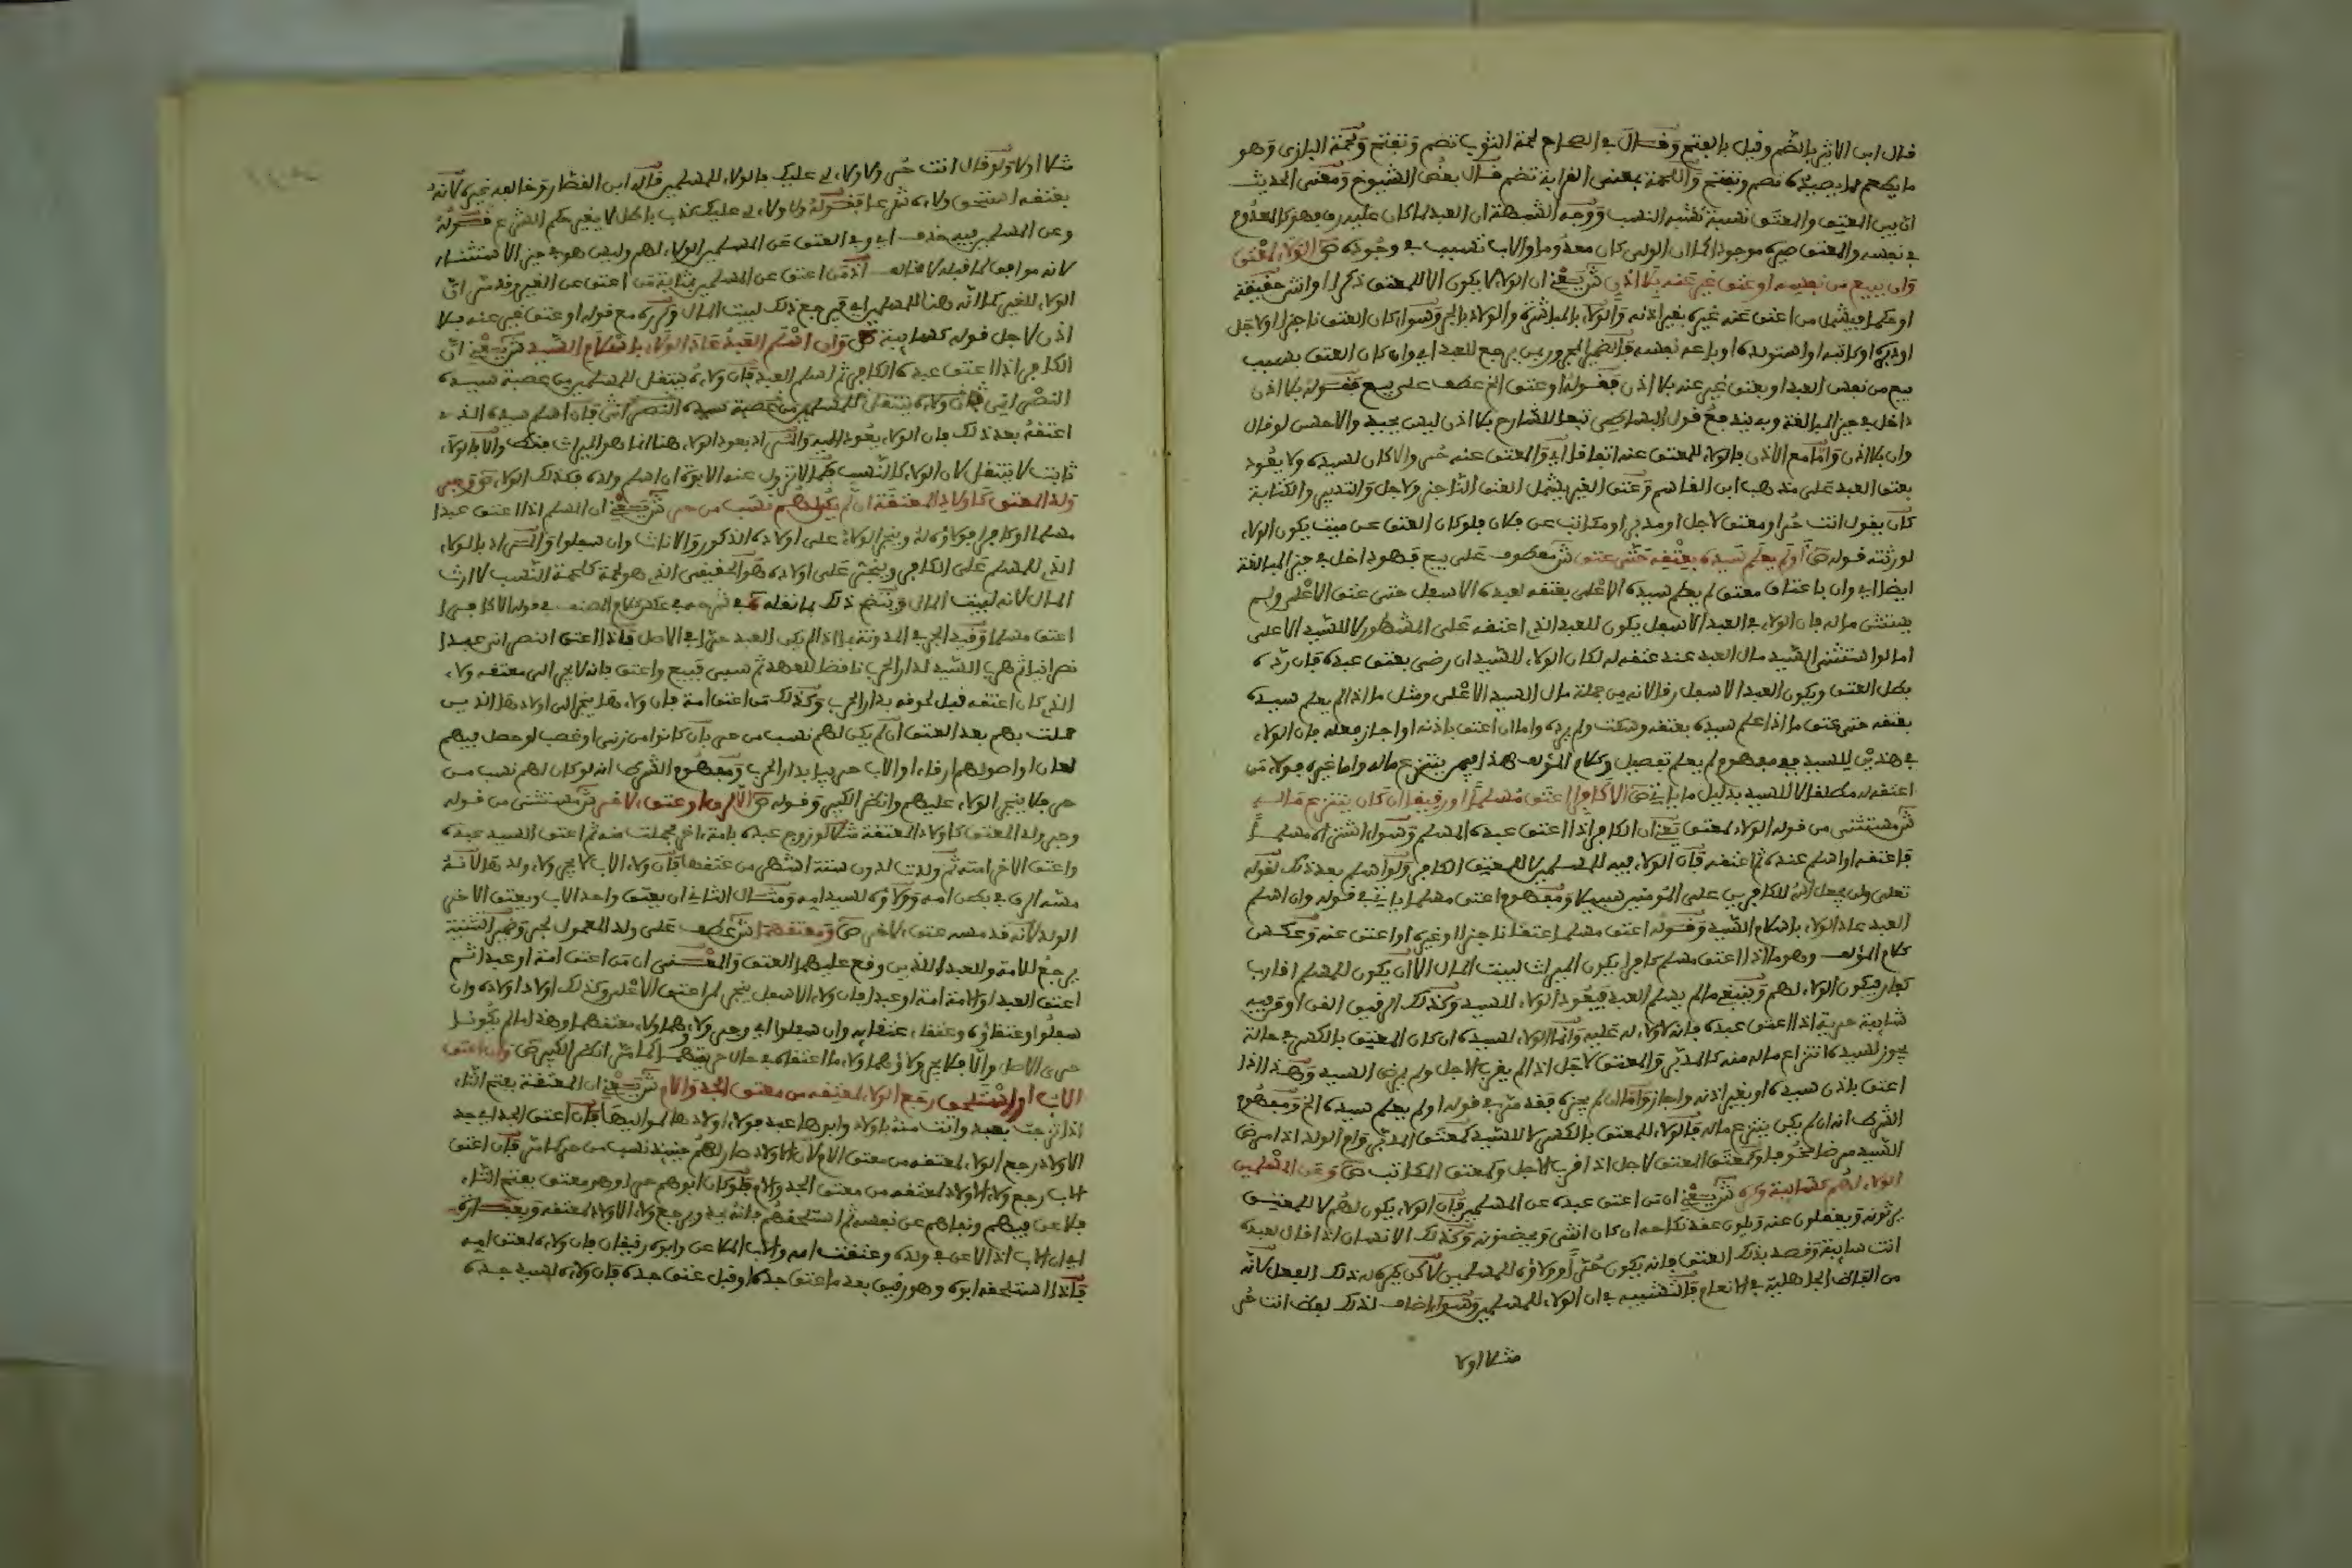 قال ابن الاثير بالضم وقيل بالفتح وقال في الصحاح لحمة الثوب تضم وتفتح ولحمة البازي وهو
ما يطعم مما يصيده تضم وتفتح واللحمة بمعنى القرابة تضم قال بعض الشيوخ ومعنى الحديث
ان بين المعتق والمعتق نسبة تشبه النسب ووجه الشبه ان العبد لما كان عليه رق فهو كالمعدوم
في نفسه والمعتق صيره موجودا كما ان الولد كان معدوما والاب تسبب في وجوده ص الولاء لمعتق
وان ببيع من نفسه او عتق غير عنه بلا اذن ش يعني ان الولاء لا يكون الا للمعتق ذكرا او انثى حقيقة
او حكما فيشمل من اعتق عنه غيره بغير اذنه والولاء بالمباشرة والولاء بالجر وسواء كان العتق ناجزا او لاجل
او دبره او كاتبه او استولده او باعه نفسه فالضمير المجرور بمن يرجع للعبد اي وان كان العتق بسبب
بيع من نفس العبد او بعتق غير عنه بلا اذن فقوله او عتق الخ عطف على بيع فقوله بلا اذن
داخل في حيز المبالغة وبه يندفع قول البساطي تبعا للشارح بلا اذن ليس بجيد والاحسن لو قال
وان بلا اذن واما مع الاذن فالولاء للمعتق عنه اتفاقا اي والمعتق عنه حر والا كان لسيده ولا يعود
بعتق العبد على مذهب ابن القاسم وعتق الغير يشمل العتق الناجز ولاجل والتدبير والكتابة
كأن يقول انت حر او معتق لاجل او مدبر او مكاتب عن فلان فلو كان العتق عن ميت يكون الولاء
لورثته قوله ص او لم يعلم سيده بعتقه حتى عتق ش معطوف على بيع فهو داخل في حيز المبالغة
ايضا اي وان باعتاق معتق لم يعلم سيده الاعلى بعتقه لعبده الاسفل حتى عتق الاعلى ولم
يستثن ماله فان الولاء في العبد الاسفل يكون للعبد الذي اعتقه على المشهور لا للسيد الاعلى
اما لو استثنى السيد مال العبد عند عتقه له لكان الولاء للسيد ان رضي بعتق عبده فان رده
بطل العتق ويكون العبد الاسفل رقا لانه من جملة مال السيد الاعلى ومثل ما اذا لم يعلم سيده
بعتقه حتى عتق ما اذا علم سيده بعتقه وسكت ولم يرده واما ان اعتق باذنه او اجاز فعله فان الولاء
في هذين للسيد ففي مفهوم لم يعلم تفصيل وكلام المؤلف هذا فيمن ينتزع ماله واما غيره فولاء من
اعتقه له مطلقا لا للسيد بدليل ما ياتي ص الا كافرا اعتق مسلما او رقيقا ان كان ينتزع ماله
ش مستثنى من قوله الولاء لمعتق يعني ان الكافر اذا اعتق عبده المسلم وسواء اشتراه مسلما
فاعتقه او اسلم عنده ثم اعتقه فان الولاء فيه للمسلمين لا للمعتق الكافر ولو اسلم بعد ذلك لقوله
تعلى ولن يجعل الله للكافرين على المؤمنين سبيلا ومفهوم اعتق مسلما ياتي في قوله وان اسلم
العبد عاد الولاء باسلام السيد وقوله اعتق مسلما اعتقا ناجزا او غيره او اعتق عنه وعكس
كلام المؤلف وهو ما اذا اعتق مسلم كافرا يكون الميراث لبيت المال الا ان يكون للمسلم اقارب
كفار فيكون الولاء لهم وينبغي ما لم يسلم العبد فيعود الولاء للسيد وكذلك الرقيق القن او وفيه
شايبة حرية اذا اعتق عبده فانه لا ولاء له عليه وانما الولاء لسيده ان كان المعتق بالكسر في حالة
يجوز لسيده انتزاع ماله منه كالمدبر والمعتق لاجل اذا لم يقرب الاجل ولم يمرض السيد وهذا اذا
اعتق باذن سيده او بغير اذنه واجاز واما ان لم يجزه فقد مر في قوله او لم يعلم سيده الخ ومفهوم
الشرط انه ان لم يكن ينتزع ماله فالولاء للمعتق بالكسر لا للسيد كمعتق المدبر وام الولد اذا مرض
السيد مرضا مخوفا وكمعتق المعتق لاجل اذا قرب الاجل وكمعتق المكاتب ص وعن المسلمين
الولاء لهم كسايبة وكره ش يعني ان من اعتق عبده عن المسلمين فان الولاء يكون لهم لا للمعتق
يرثونه ويعقلون عنه ويلون عقد نكاحه ان كان انثى ويحضنونه وكذلك الانسان اذا قال لعبده
انت سايبة وقصد بذلك العتق فانه يكون حرا وولاؤه للمسلمين لاكن يكره له ذلك الفعل لانه
من الفاظ الجاهلية في الانعام فالتشبيه في ان الولاء للمسلمين وسواء اضاف لذلك لفظ انت حر
مثلا اولا
مثلا اولا ولو قال انت حر ولا ولاء لي عليك فالولاء للمسلمين قاله ابن القصار وخالعه غيره لانه
بعتقه استحق ولاءه شرعا فقوله ولا ولاء لي عليك كذب باطل لا يغير حكم الشرع فقوله
وعن المسلمين فيه حذف اي وفي العتق عن المسلمين الولاء لهم وليس هو في حيز الاستثناء
لانه موافق لما قبله لا مخالف اذ من اعتق عن المسلمين بمثابة من اعتق عن الغير وقد مر ان
الولاء للغير كما انه هنا للمسلمين اي فيرجع ذلك لبيت المال وكرره مع قوله او عتق غير عنه بلا
اذن لاجل قوله كسايبة ص وان اسلم العبد عاد الولاء باسلام السيد ش يعني ان
الكافر اذا اعتق عبده الكافر ثم اسلم العبد فان ولاءه ينتقل للمسلمين من عصبة سيده
النصراني فان ولاءه ينتقل للمسلمين من عصبة سيده النصراني فان اسلم سيده الذي
اعتقه بعد ذلك فان الولاء يعود اليه والمراد بعود الولاء هنا انما هو الميراث فقط والا فالولاء
ثابت لا ينتقل لان الولاء كالنسب فكما لا تزول عنه الابوة ان اسلم ولده فكذلك الولاء ص وجر
ولد المعتق كاولاد المعتقة ان لم يكن لهم نسب من حر ش يعني ان المسلم اذا اعتق عبدا
مسلما او كافرا فولاؤه له وينجر الولاء على اولاده الذكور والاناث وان سفلوا والمراد بالولاء
الذي للمسلم على الكافر وينجر على اولاده هو الحقيقي الذي هو لحمة كلحمة النسب لا ارث
المال لانه لبيت المال ويتضح ذلك بما نقله في شرحه عند كلام المصنف في قوله الا كافرا
اعتق مسلما وقيد الجر في المدونة بما اذا لم يكن العبد حربيا في الاصل فاذا اعتق النصراني عبدا
نصرانيا ثم هرب السيد لدار الحرب ناقضا للعهد ثم سبي فبيع واعتق فانه لا يجر الى معتقه ولاء
الذي كان اعتقه قبل لحوقه بدار الحرب وكذلك من اعتق امة فان ولاءها ينجر الى اولادها الذين
حملت بهم بعد العتق ان لم يكن لهم نسب من حر بان كانوا من زنى او غصب او حصل فيهم
لعان او اصولهم ارقاء او الاب حربيا بدار الحرب ومفهوم الشرط انه لو كان لهم نسب من
حر فلا ينجر الولاء عليهم وانظر الكبير وقوله ص الا لرق او عتق لاخر ش مستثنى من قوله
وجر ولد المعتق كاولاد المعتقة مثلا لو زوج عبده بامة اخر فحملت منه ثم اعتق السيد عبده
واعتق الاخر امته ثم ولدت لدون ستة اشهر من عتقها فان ولاء الاب لا يجر ولاء ولدها لانه
مسه الرق في بطن امه وولاؤه لسيد امه ومثال الثاني ان يعتق واحد الاب ويعتق الاخر
الولد لانه قد مسه عتق لاخر ص ومعتقهما ش عطف على ولد المعمول لجر وضمير التثنية
يرجع للامة وللعبد اللذين وقع عليهما العتق والمعنى ان من اعتق امة او عبدا ثم
اعتق العبد او الامة امة او عبدا فان ولاء الاسفل ينجر لمن اعتق الاعلى وكذلك اولاد اولاده وان
سفلوا وعتقاؤه وعتقاء عتقايه وان سفلوا اي وجر ولاؤهما ولاء معتقهما وهذا ما لم يكونا
حرى الاصل والا فلا يجر ولاؤهما ولاء ما اعتقاه في حال حريتهما كما مر انظر الكبير ص وان اعتق
الاب او استلحق رجع الولاء لمعتقه من معتق الجد والام ش يعني ان المعتقة بفتح التاء
اذا تزوجت بعبد واتت منه باولاد وابوها عبد فولاء اولادها لمواليها فان اعتق الجد اي جد
الاولاد رجع الولاء لمعتقه من معتق الام لان الاولاد صار لهم حينئذ نسب من حر كما مر فان اعتق
الاب رجع ولاء الاولاد لمعتقه من معتق الجد والام فلو كان ابوهم حر او هو معتق بفتح التاء
فلاعن فيهم ونفاهم عن نفسه ثم استلحقهم فانه يحد ويرجع ولاء الاولاد لمعتقه وبعبارة
اي ان الاب اذا لاعن في ولده وعتقت امه والاب الملاعن وابوه رقيقان فان ولاءه لمعتق امه
فاذا استلحقه ابوه وهو رقيق بعد ما عتق جده او قبل عتق جده فان ولاءه لسيد جده